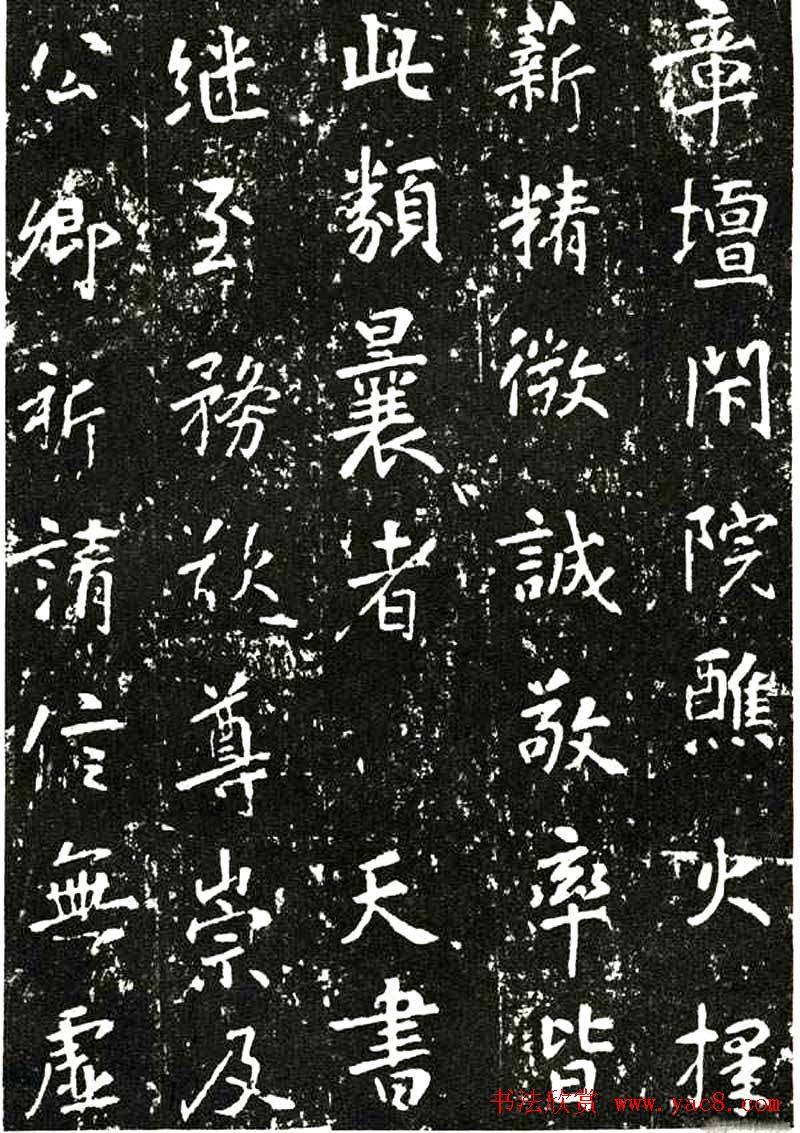 章壇閇院醮火擇
薪精微誠敬率皆
此類曩者 天書
継至務欲尊崇及
公卿祈請信無虚
书法欣赏 www.yac8.com